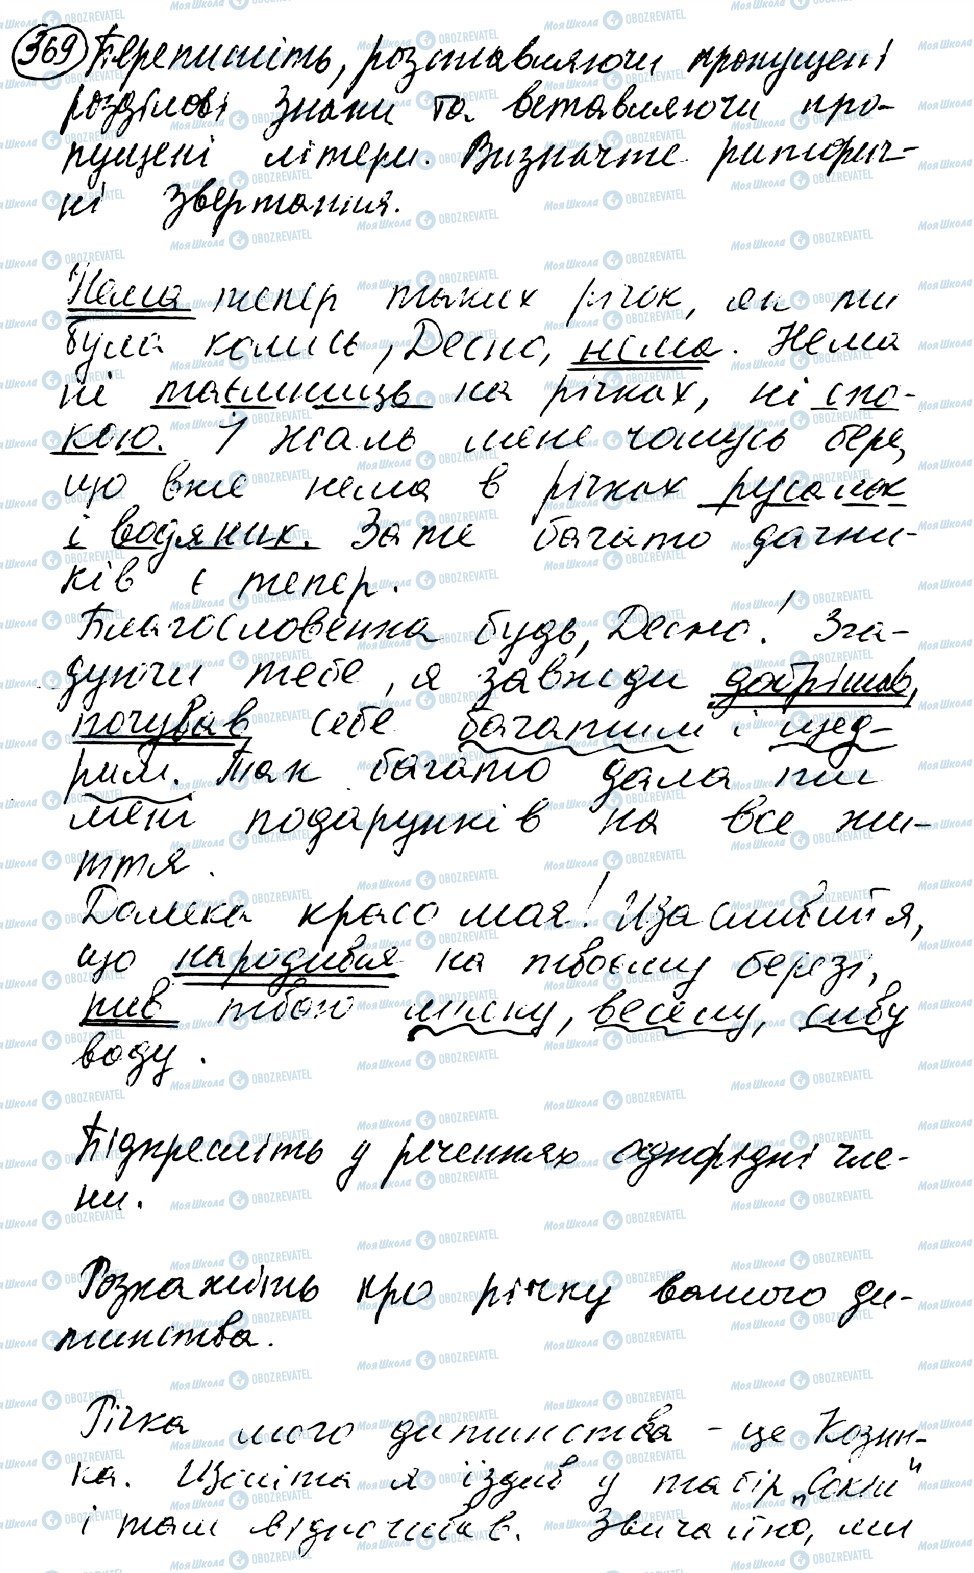 369 Перепишіть, розставляючи пропущені
розділові знаки та вставляючи про-
пущені літери. Визначте риторич-
ні звертання.
Нема тепер таких річок, як ти
була колись, Десно, нема. Нема
ні таємниць на річках, ні спо-
кою. І жаль мене чомусь бере,
що вже нема в річках русалок
і водяник. Зате багато дачни-
ків є тепер.
Благословенна будь, Десно! Зга-
дуючи тебе, я завжди добрішав,
почував себе багатим і щед-
рим. Так багато дала ти
мені подарунків на все жи-
ття.
Далека красо моя! Щасливий я,
що народився на твоєму березі,
пив твою м'яку, веселу, сиву
воду.
Підкресліть у реченнях однорідні чле-
ни.
Розкажіть про річку вашого ди-
тинства.
Річка мого дитинства - це Козин-
ка. Щоліта я їздив у табір „Сокіл"
і там відпочивав. Звичайно, ми